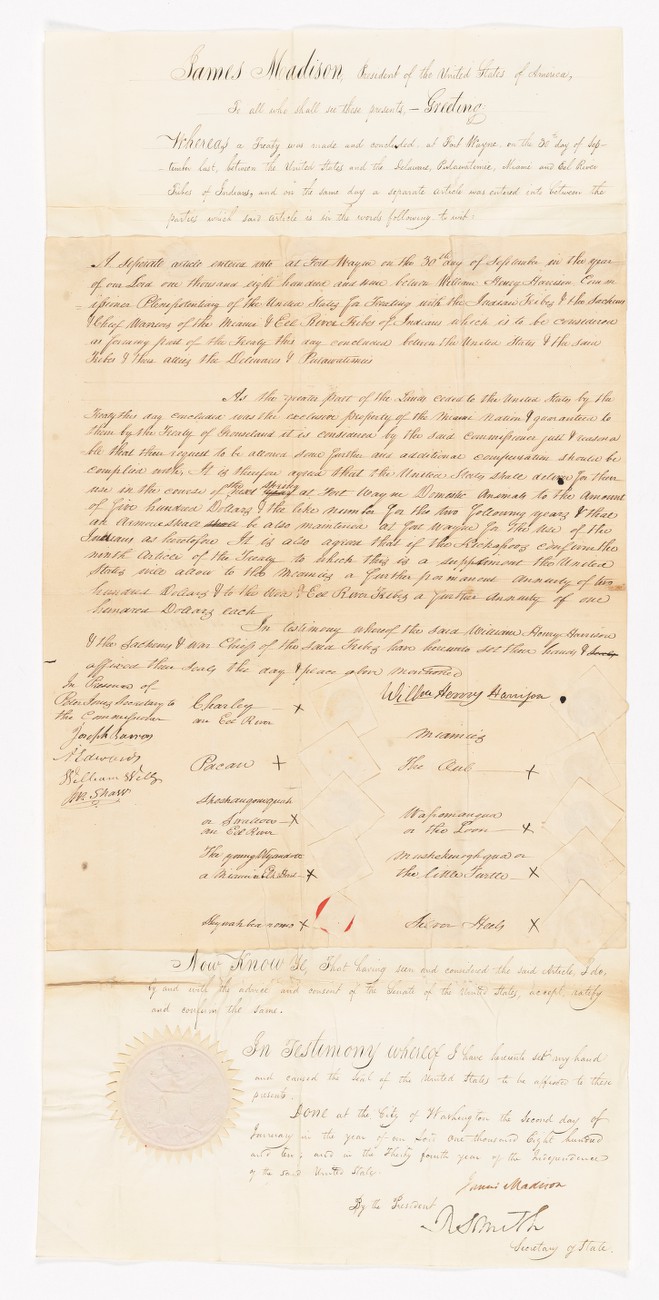 James Madison, President of the United States of America,
To all who shall see these presents, — Greeting,
Whereas a Treaty was made and concluded at Fort Wayne on the 30th day of Sep-
-tember last, between the United States and the Delaware, Putawatimie, Miame and Eel River
Tribes of Indians, and on the same day a separate article was entered into between the
parties which said article is in the words following to wit:
A Seperate article entered into at Fort Wayne on the 30th day of September in the year
of our Lord one thousand eight hundred and nine between William Henry Harrison Com
issioner Plenepotentiary of the United States for Treating with the Indian Tribes & the Sachems
& Chief Warriors of the Miamie & Eel River Tribes of Indians which is to be considered
as forming part of the Treaty this day concluded between the United States & the said
Tribes & their allies the Delewares & Putawatimies
As the greater part of the Lands ceded to the United States by the
Treaty this day concluded was the exclusive property of the Miamie Nation & guarantied to
them by the Treaty of Grouseland it is considered by the said commissioner just & reasona
ble that their request to be allowed some further and additional compensation should be
complied with. It is therefore agreed that the United States shall deliver for their
use in the course of the next spring at Fort Wayne Domestic Animals to the Amount
of five hundred Dollars & the like number for the two following years & that
an Armourer shall be also maintained at Fort Wayne for the use of the
Indians as heretofore It is also agreed that if the Kickapoos confirm the
ninth Article of the Treaty to which this is a supplement the United
States will allow to the Miamies a further permanent Annuity of two
hundred Dollars & to the Wea & Eel River Tribes a further Annuity of one
hundred Dollars each
In testimony whereof the said William Henry Harrison
& the Sachems & war Chiefs of the said Tribes have hereunto set their hands &
affixed their seals the day & place above mentioned
In Presence of
Peter Jones Secretary to
the Commissioner
Joseph Barron
A Edwards
William Wells
Jno Shaw
Charley x
an Eel River
Pacan x
Sheshangomequah
or Swallow x
an Eel River
The young Wyandott
a Miamie x
Keywahtea x
Willm Henry Harrison
Miamies
The Owl x
Wapemangua
or the Loon x
Mushekenoghqua or
the little Turtle x
Silver Heels x
Now Know Ye, That having seen and considered the said Article, I do,
by and with the advice and consent of the Senate of the United States, accept, ratify
and confirm the same.
In Testimony whereof I have hereunto set my hand
and caused the Seal of the United States to be affixed to these
presents.
Done at the City of Washington the Second day of
January in the year of our Lord one thousand Eight hundred
and ten; and in the Thirty fourth year of the Independence
of the said United States.
James Madison
By the President
R Smith
Secretary of State.